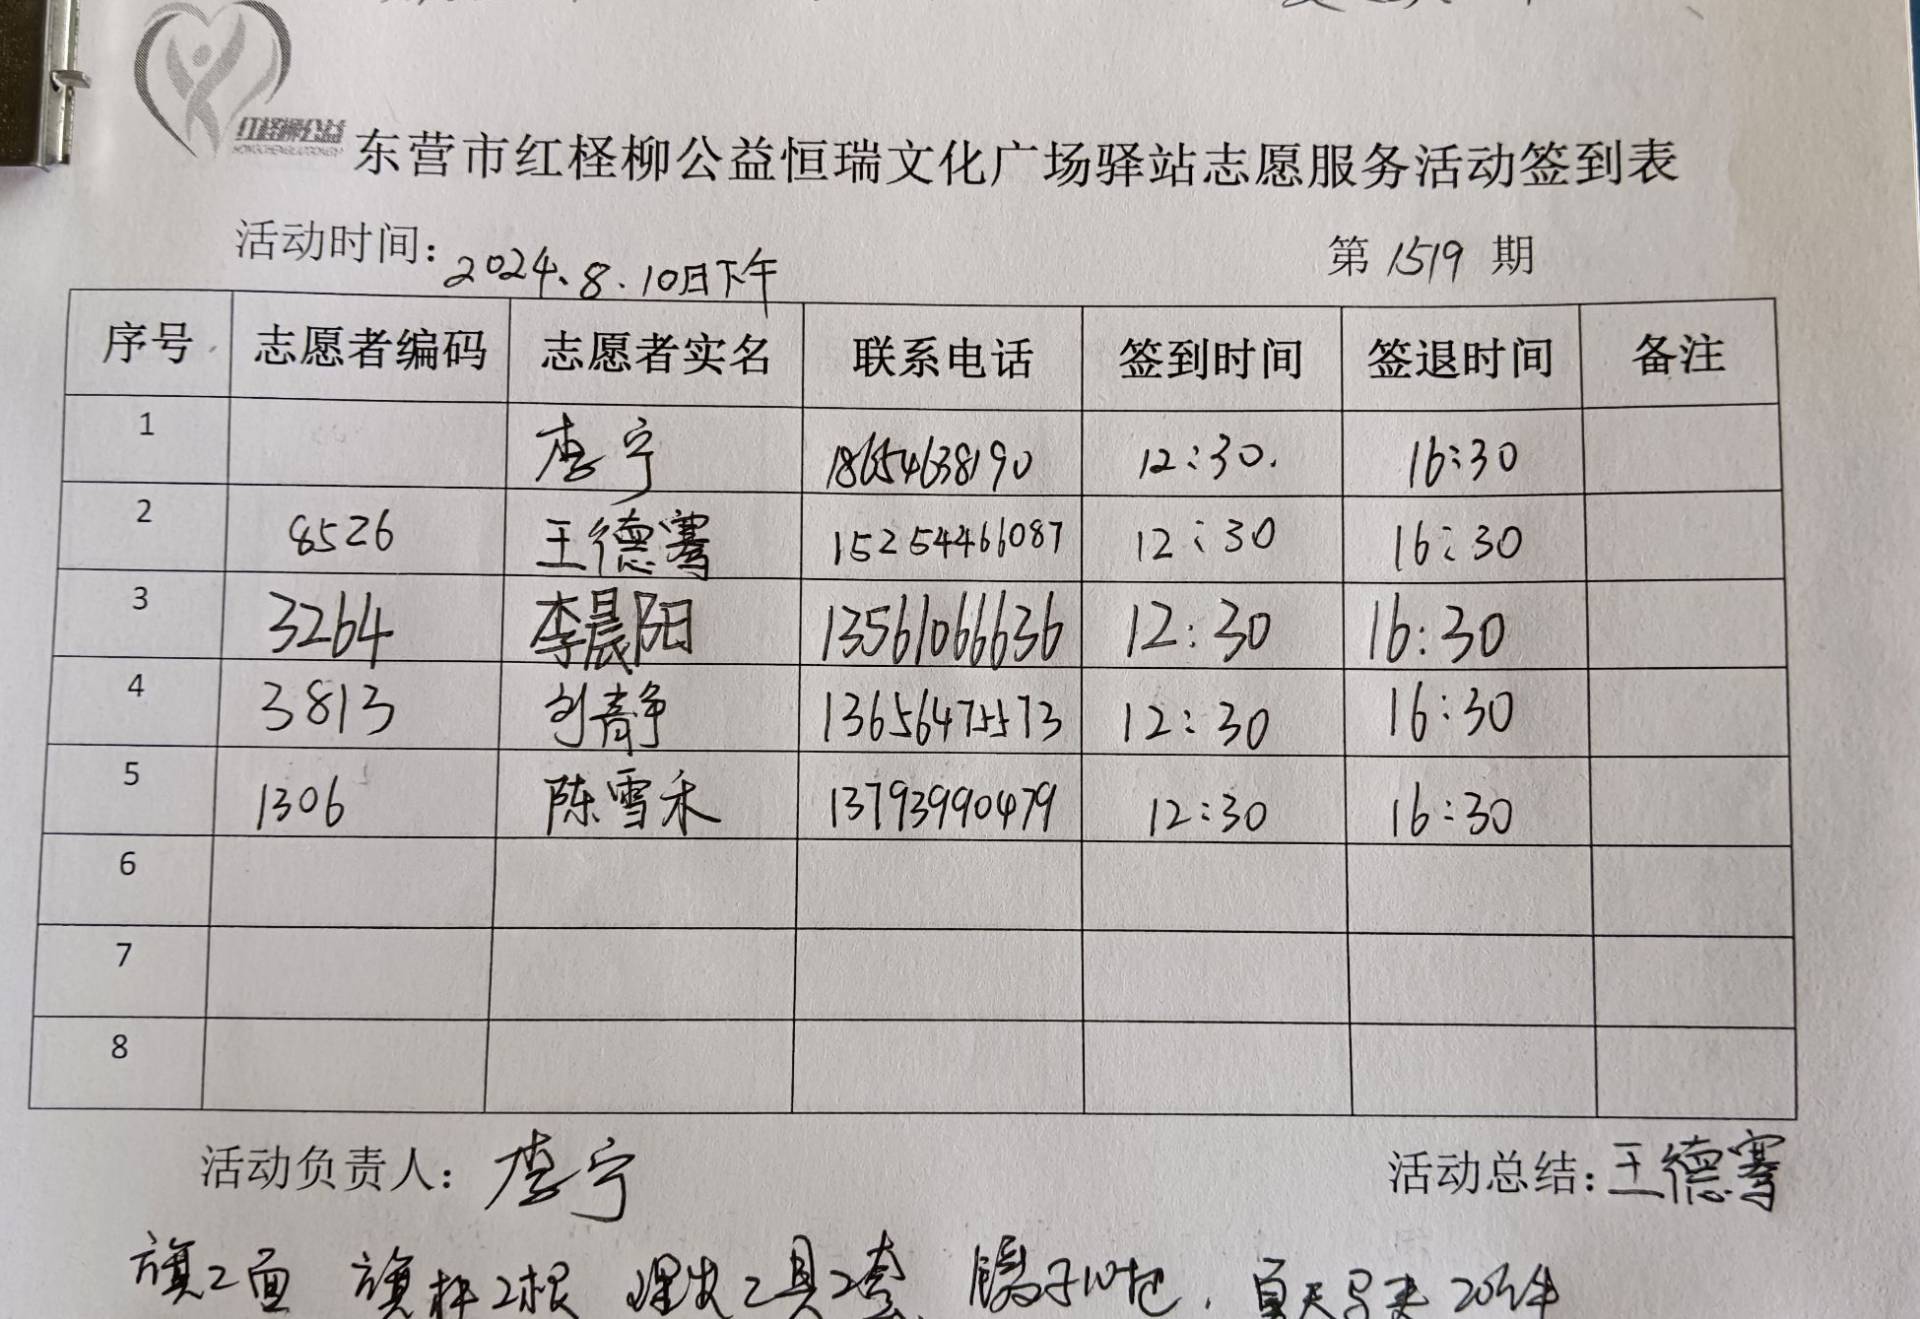 红柽柳公益
东营市红柽柳公益恒瑞文化广场驿站志愿服务活动签到表
活动时间：2024.8.10日下午 第 1519 期
序号 志愿者编码 志愿者实名 联系电话 签到时间 签退时间 备注
1 李宁 18654638190 12:30. 16:30
2 8526 王德骞 15254466087 12:30 16:30
3 3264 李晨阳 13561066636 12:30 16:30
4 3813 刘静 13656475573 12:30 16:30
5 1306 陈雪禾 13793990479 12:30 16:30
6
7
8
活动负责人：李宁 活动总结：王德骞
旗2面 旗杆2根 理发工具2套